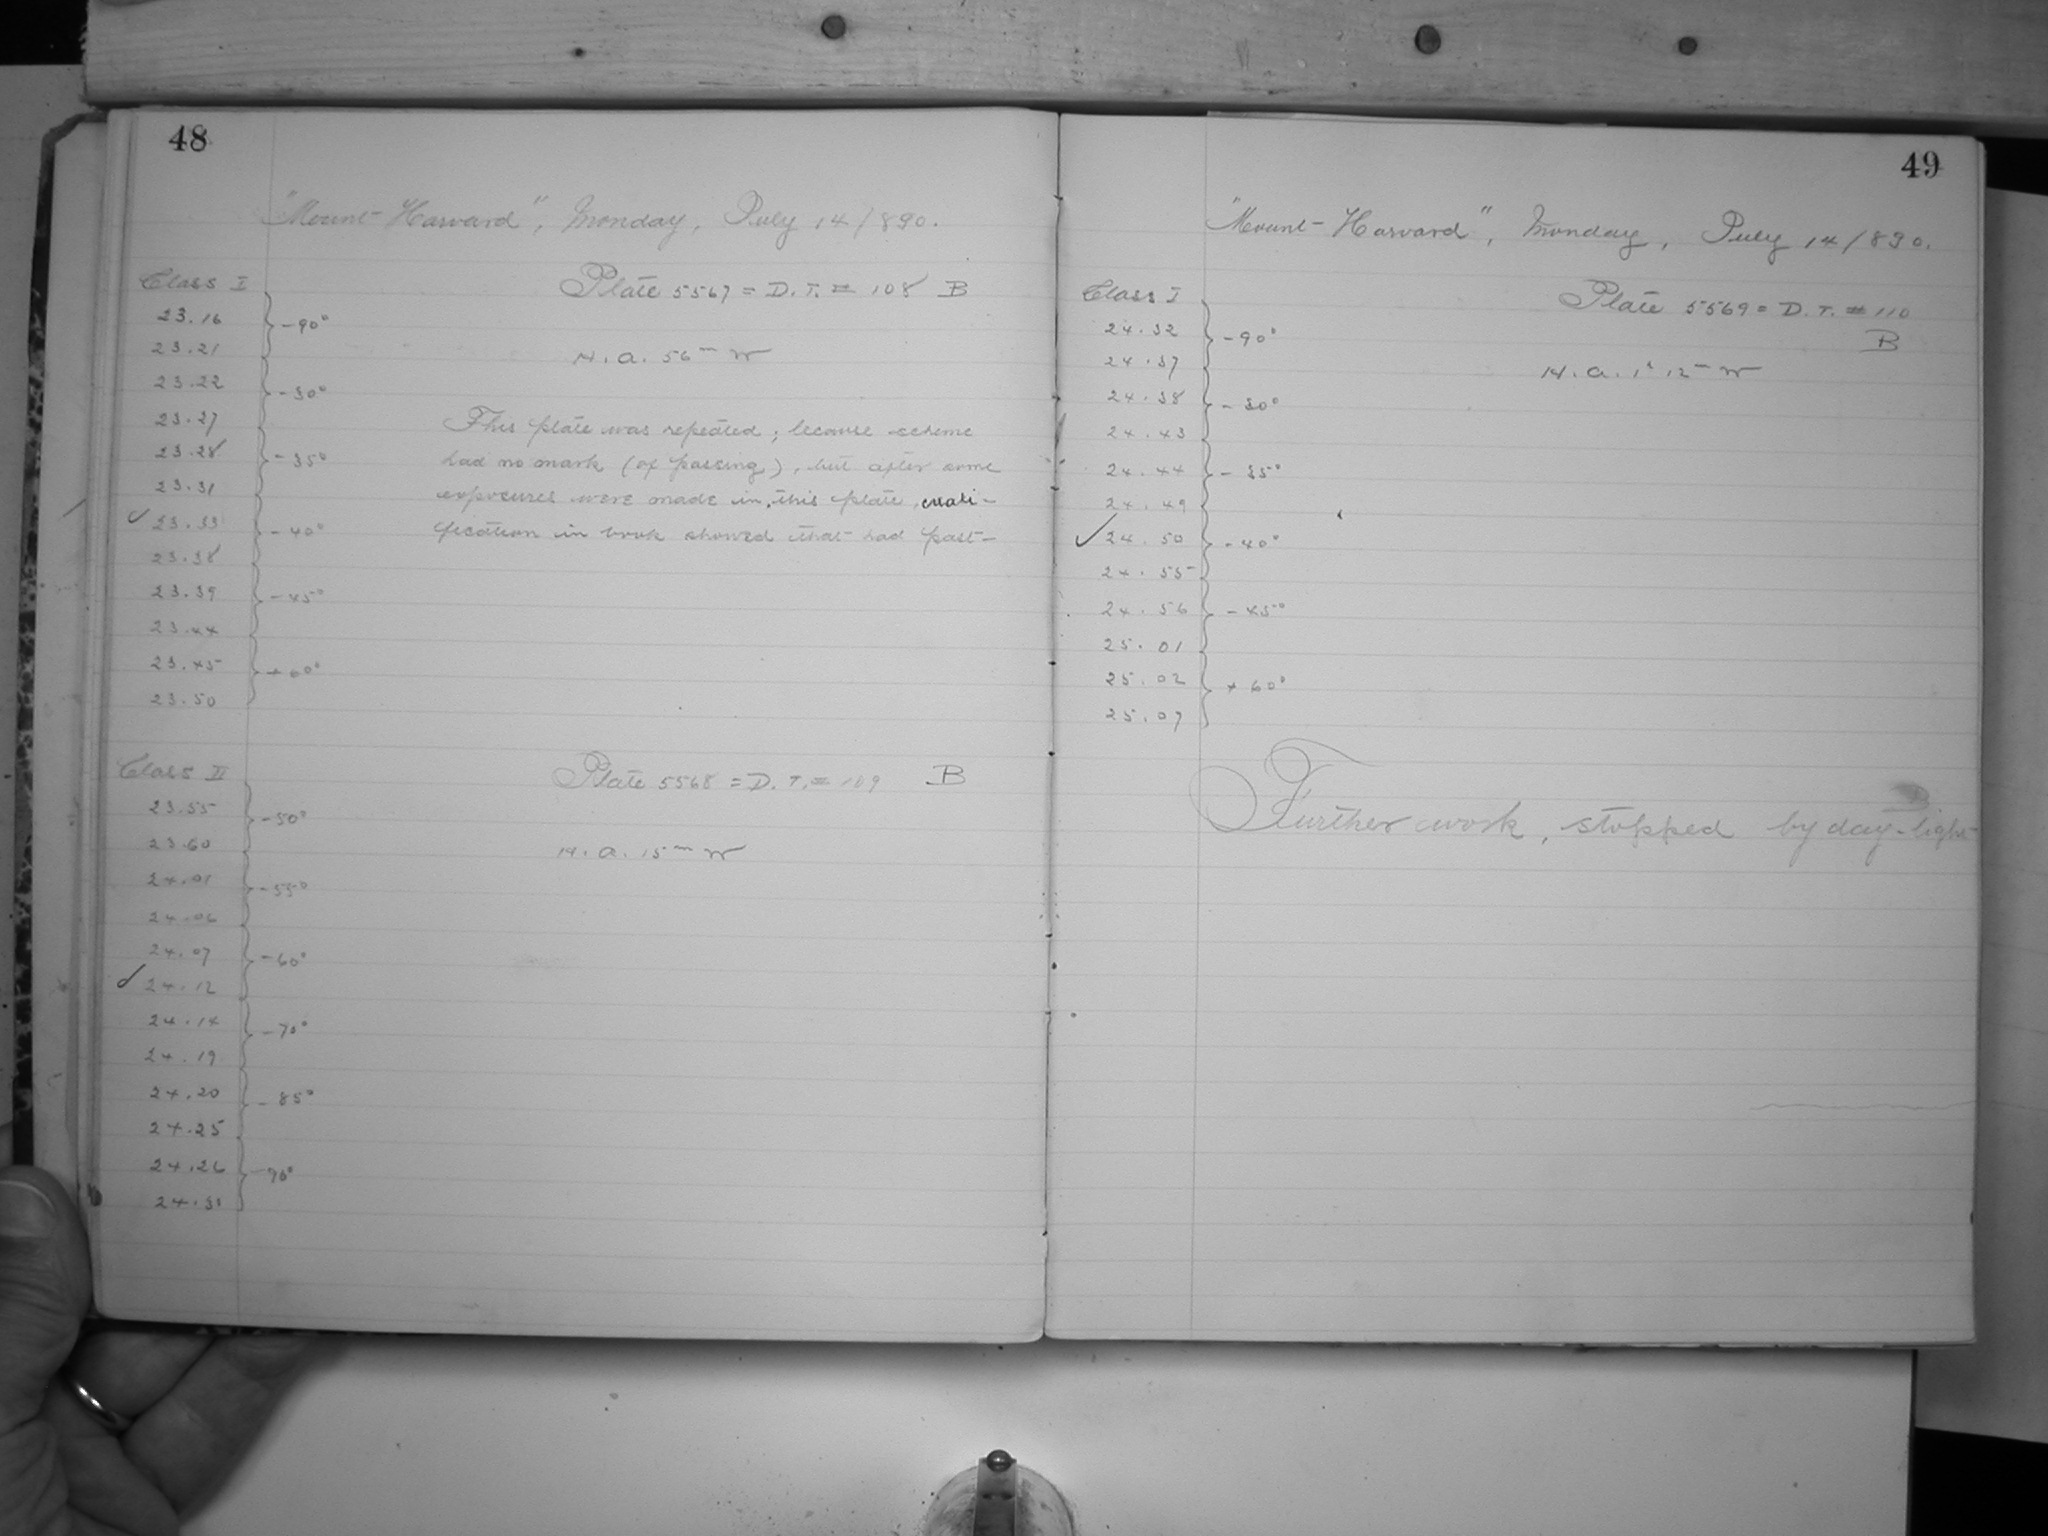 48
"Mount-Harvard", Monday, July 14/890.
Class I
Plate 5567 = D. T. = 108 B
23.16
-90°
23.21
H. a. 56m W
23.22
-30°
23.27
This plate was repeated; because scheme
23.28
-35°
had no mark (of passing), but after some
23.31
exposures were made in this plate,
23.33
-40°
fication in book showed that had past-
23.38
23.39
-45°
23.44
23.45
+60°
23.50
Class II
Plate 5568 = D. T. = 109 B
23.55
-50°
23.60
H. a. 15m W
24.01
-55°
24.06
24.07
-60°
24.12
24.14
-70°
24.19
24.20
-85°
24.25
24.26
-90°
24.31
49
"Mount-Harvard", Monday, July 14/890.
Class I
Plate 5569 = D. T. = 110
B
24.32
-90°
24.37
H. a. 1h 12m W
24.38
-30°
24.43
24.44
-35°
24.49
24.50
-40°
24.55
24.56
-45°
25.01
25.02
+60°
25.07
Further work, stopped by day-light